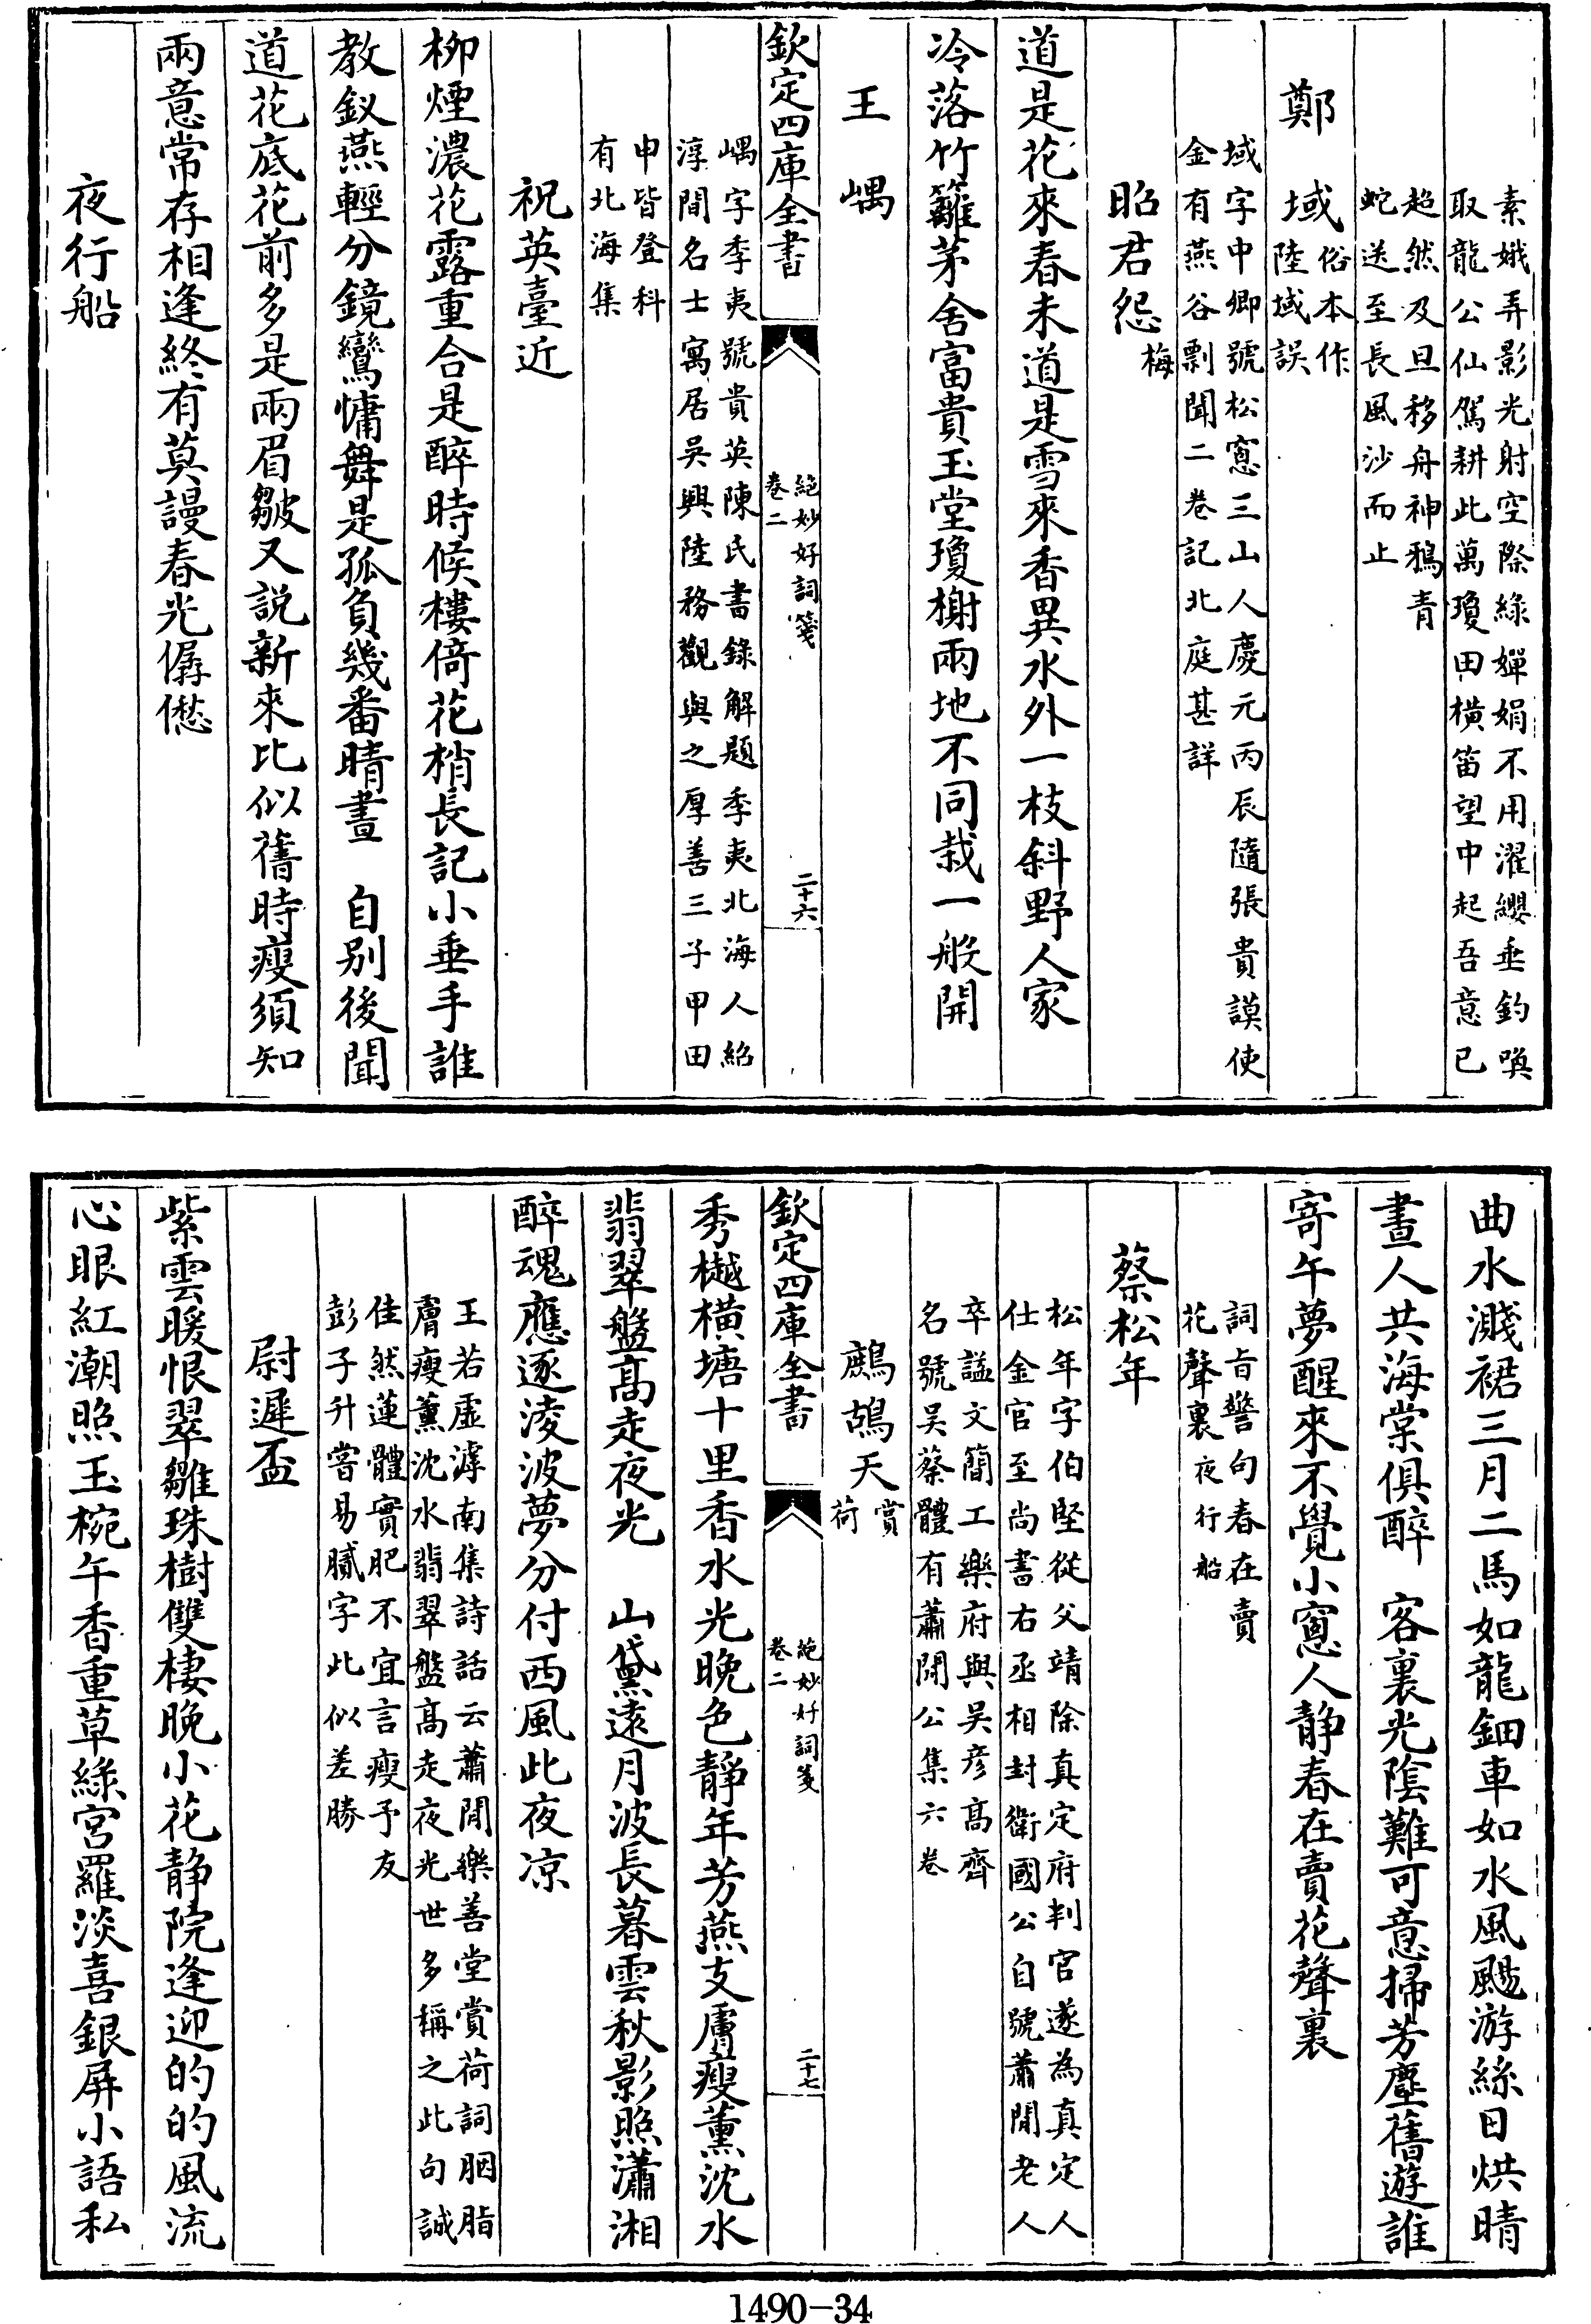 素娥弄影光射空際綠嬋娟不用濯纓垂釣喚
取龍公仙駕耕此萬瓊田橫笛望中起吾意已
超然及旦移舟神鴉青
蛇送至長風沙而止
鄭域俗本作
陸域誤
域字中卿號松窻三山人慶元丙辰隨張貴謨使
金有燕谷剽聞二卷記北庭甚詳
昭君怨梅
道是花來春未道是雪來香異水外一枝斜野人家
冷落竹籬茅舍富貴玉堂瓊榭兩地不同栽一般開
王嵎
欽定四庫全書
絶妙好詞箋
卷二
二十六
嵎字季夷號貴英陳氏書錄解題季夷北海人紹
淳間名士寓居吳興陸務觀與之厚善三子甲田
申皆登科
有北海集
祝英臺近
柳煙濃花露重合是醉時候樓倚花梢長記小垂手誰
教釵燕輕分鏡鸞慵舞是孤負幾番晴晝　自别後聞
道花底花前多是兩眉皺又説新來比似舊時瘦須知
兩意常存相逢終有莫謾春光僝僽
夜行船
曲水濺裙三月二馬如龍鈿車如水風颺游絲日烘晴
晝人共海棠俱醉　客裏光隂難可意掃芳塵舊遊誰
寄午夢醒來不覺小窻人静春在賣花聲裏
詞㫖警句春在賣
花聲裏夜行船
蔡松年
松年字伯堅從父靖除真定府判官遂為真定人
仕金官至尚書右丞相封衛國公自號蕭閒老人
卒謚文簡工樂府與吳彦髙齊
名號吳蔡體有蕭閒公集六卷
鷓鴣天賞
荷
秀樾橫塘十里香水光晚色靜年芳燕支膚瘦薰沈水
翡翠盤髙走夜光　山黛遠月波長暮雲秋影照瀟湘
醉魂應逐淩波夢分付西風此夜凉
欽定四庫全書
絶妙好詞箋
卷二
二十七
王若虛滹南集詩話云蕭閒樂善堂賞荷詞胭脂
膚瘦薰沈水翡翠盤髙走夜光世多稱之此句誠
佳然蓮體實肥不宜言瘦予友
彭子升嘗易膩字此似差勝
尉遲盃
紫雲暖恨翠雛珠樹雙棲晚小花静院逢迎的的風流
心眼紅潮照玉椀午香重草綠宮羅淡喜銀屏小語私
1490-34